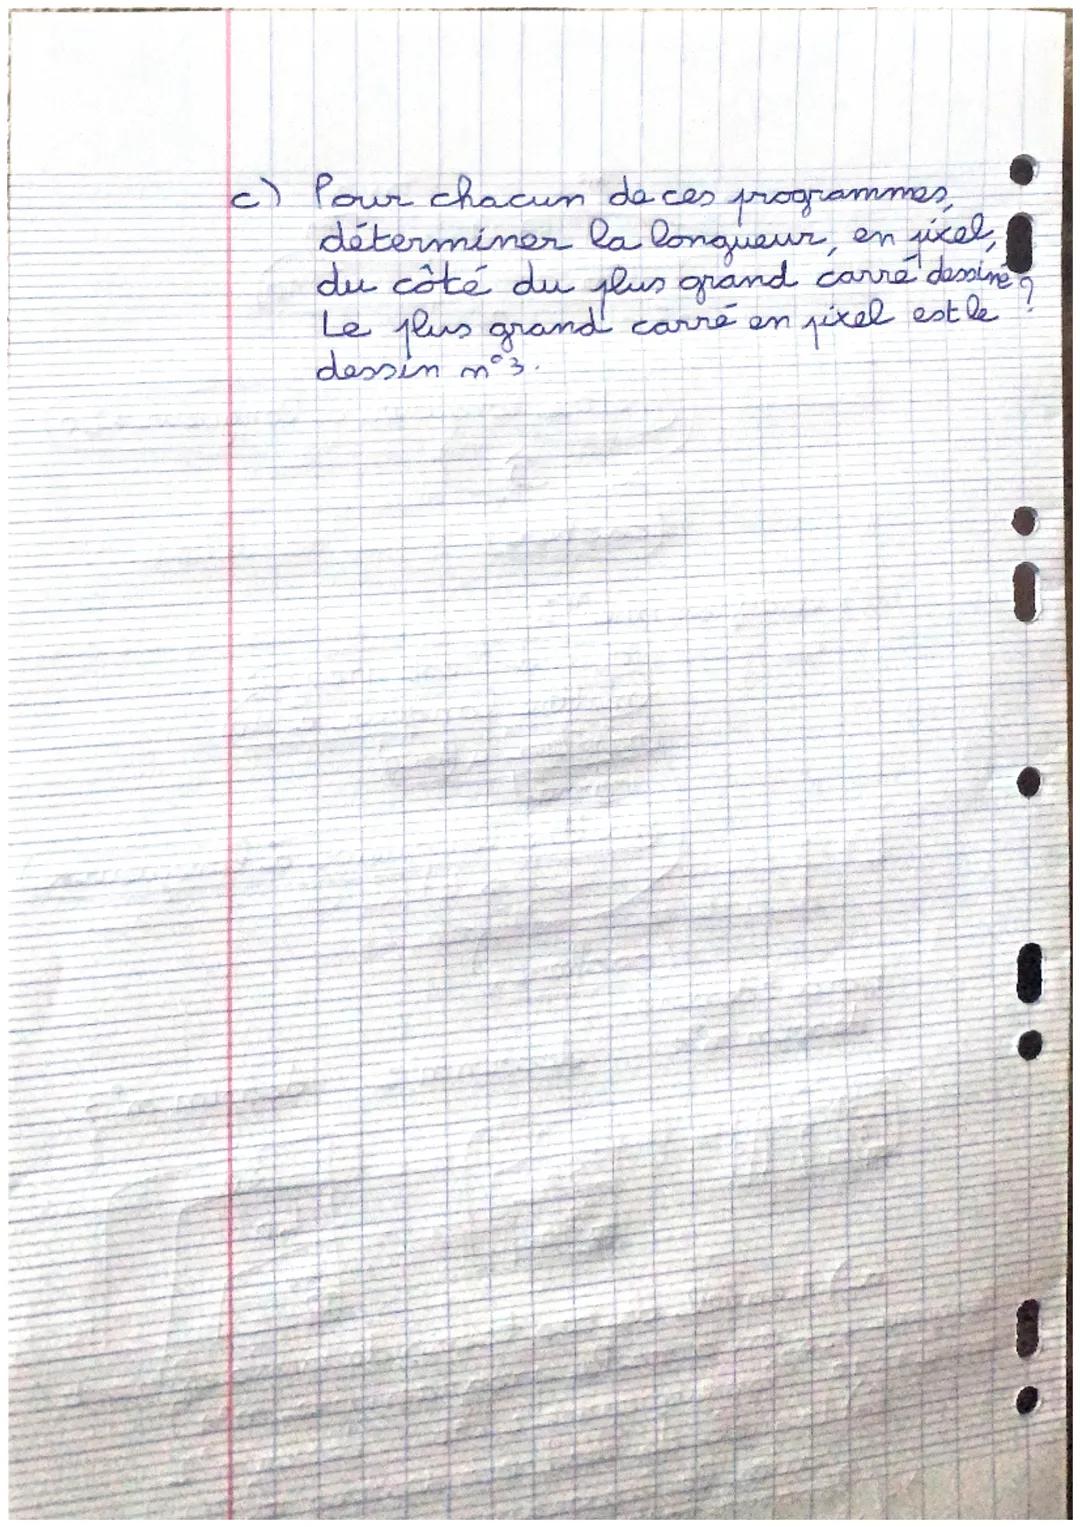 c) Pour chacun de ces programmes,
déterminer la longueur, en pixel,
du côté du plus grand carré dessiné ?
Le plus grand carré en pixel est le
dessin n°3.